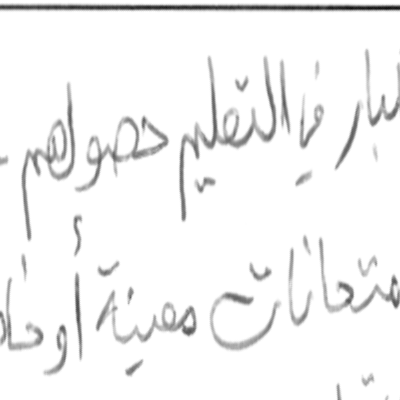 لبار في التعليم حصولهم
متحانات معينة أو خا